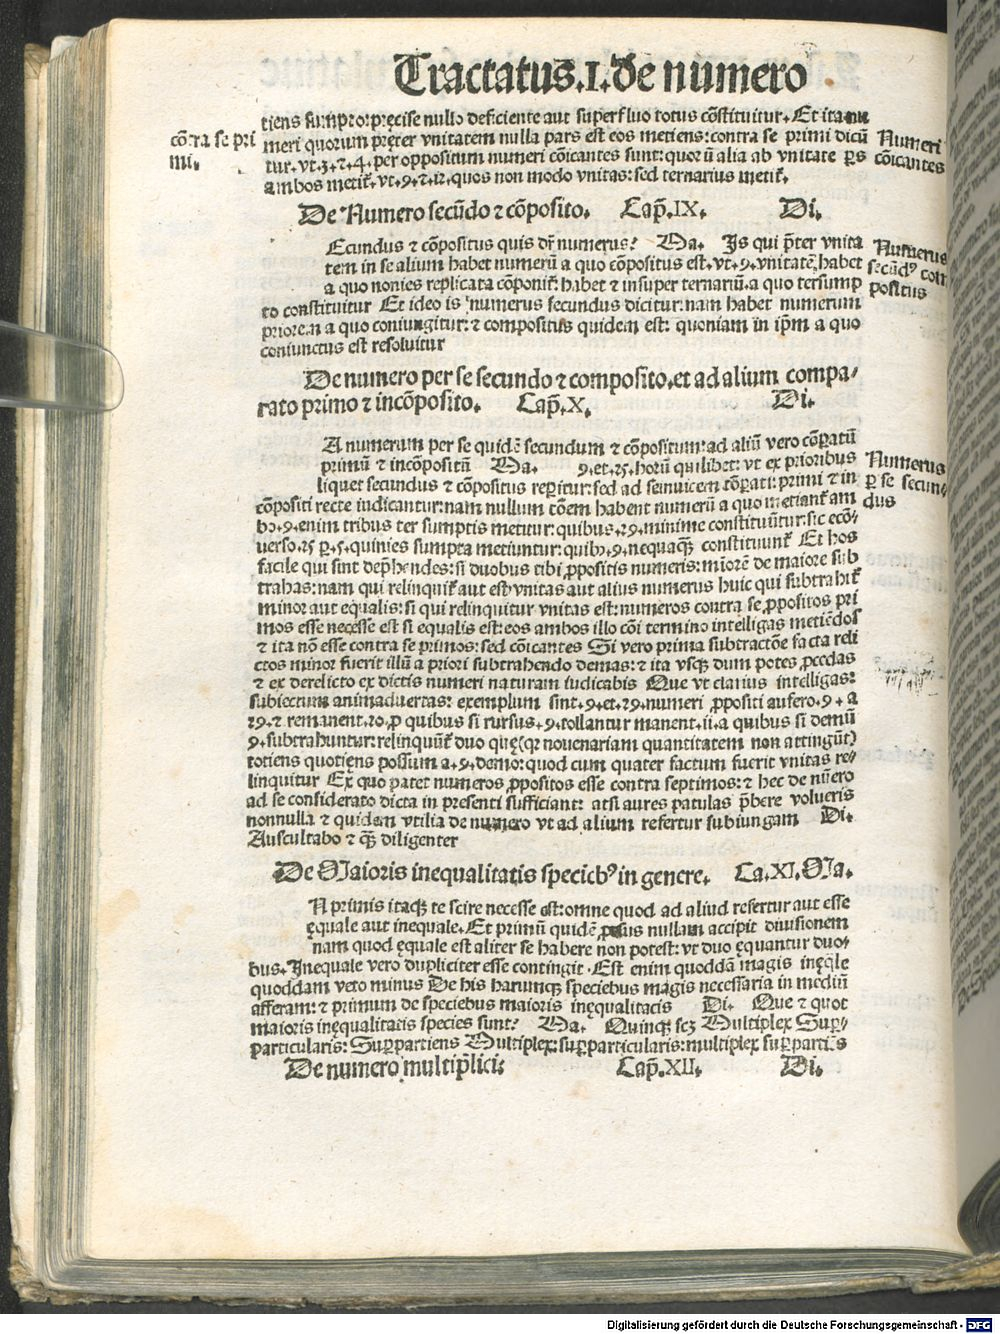 Tractatus.I.de numero
tiens sumpto:pręcise nullo deficiente aut superfluo totus cōstituitur. Et ita nu
meri quorum pręter vnitatem nulla pars est eos metiens:contra se primi dicū
tur.vt.3.⁊.4.per oppositum numeri cōicantes sunt:quorū alia ab vnitate ꝑs
ambos metit᷑.vt.9.⁊.12.quos non modo vnitas:sed ternarius metit᷑.
cōtra se pri
mi.
Numeri
cōicantes
De Numero secūdo ⁊ cōposito. Cap̄.IX. Di.
Ecundus ⁊ cōpositus quis dr̄ numerus? Ma. Is qui p̄ter vnita
tem in se alium habet numerū a quo cōpositus est.vt.9.vnitatē habet
a quo nonies replicata cōponit᷑: habet ⁊ insuper ternariū.a quo tersump
to constituitur Et ideo is numerus secundus dicitur:nam habet numerum
priorem a quo coniungitur: ⁊ compositus quidem est: quoniam in ip̄m a quo
coniunctus est resoluitur
Numerus
secūdꝰ com
positus
De numero per se secundo ⁊ composito.et ad alium compa-
rato primo ⁊ incōposito. Cap̄.X. Di.
A numerum per se quidē secundum ⁊ cōpositum:ad aliū vero cōꝑatū
primū ⁊ incōpositū Ma. 9.et.25.horū quilibet: vt ex prioribus
liquet secundus ⁊ cōpositus reꝑitur:sed ad seinuicem cōꝑati: primi ⁊ in
cōpositi recte iudicantur:nam nullum cōem habent numerū a quo metiant᷑ am
bo.9.enim tribus ter sumptis metitur: quibus.29.minime constituūtur:sic ecō-
uerso.25 ꝑ.5.quinies sumpta metiuntur:quibꝰ.9.nequaqꝫ constituunt᷑ Et hos
facile qui sint dep̄hendes:si duobus tibi ꝓpositis numeris: mīorē de maiore sub
trahas: nam qui relinquit᷑ aut est vnitas aut alius numerus huic qui subtrahit᷑
minor aut equalis: si qui relinquitur vnitas est: numeros contra se ꝓpositos pri
mos esse necesse est si equalis est: eos ambos illo cōi termino intelligas metiēdos
⁊ ita nō esse contra se primos: sed cōicantes Si vero prima subtractōe facta reli
ctos minor fuerit illū a priori subtrahendo demas: ⁊ ita vsqꝫ dum potes ꝓcedas
⁊ ex derelicto ex dictis numeri naturam iudicabis Que vt clarius intelligas:
subiectum animaduertas: exemplum sint.9.et.29.numeri ꝓpositi aufero.9.a
29.⁊ remanent.20.ꝓ quibus si rursus.9.tollantur manent.ii.a quibus si demū
9.subtrahuntur:relinquūt᷑ duo quę(qꝛ nouenariam quantitatem non attingūt)
totiens quotiens possum a.9.demo: quod cum quater factum fuerit vnitas re-
linquitur Ex quo patet numeros ꝓpositos esse contra septimos: ⁊ hec de nūero
ad se considerato dicta in presenti sufficiant: atsi aures patulas p̄bere volueris
nonnulla ⁊ quidem vtilia de numero vt ad alium refertur subiungam Di.
Auscultabo ⁊ qꝫ diligenter
Numerus
ꝑ se secun
dus
De Maioris inequalitatis speciebꝰ in genere. Ca.XI.Ma.
N primis itaqꝫ te scire necesse est:omne quod ad aliud refertur aut esse
ęquale aut inequale.Et primū quidē ꝓsus nullam accipit diuisionem
nam quod ęquale est aliter se habere non potest: vt duo ęquantur duo-
bus.Inequale vero dupliciter esse contingit.Est enim quoddā magis inęqle
quoddam vero minus De his harumqꝫ speciebus magis necessaria in mediū
afferam: ⁊ primum de speciebus maioris inęqualitatis Di. Que ⁊ quot
maioris inęqualitatis species sunt? Ma. Quinqꝫ scꝫ Multiplex Suꝑ-
particularis: Suꝑpartiens Multiplex: suꝑparticularis: multiplex suꝑpartiēs
De numero multiplici Cap̄.XII. Di.
Digitalisierung gefördert durch die Deutsche Forschungsgemeinschaft - DFG